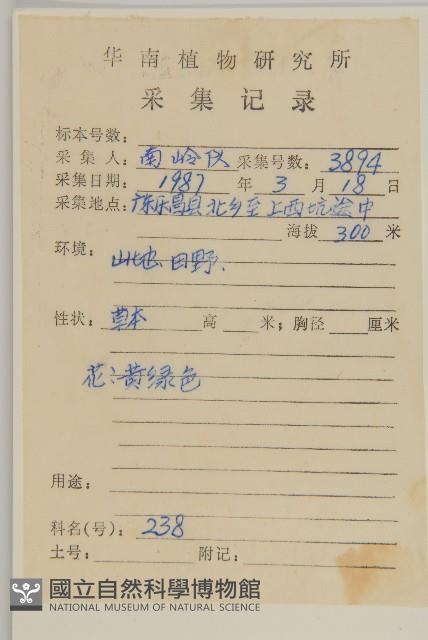 华南植物研究所
采集记录
标本号数:
采集人: 南岭队 采集号数: 3894
采集日期: 1987 年 3 月 18 日
采集地点: 广东乐昌县北乡至上西坑途中
海拔 300 米
环境: 山地、田野.
性状: 草本 高 米; 胸径 厘米
花:黄绿色
用途:
科名(号): 238
土号: 附记:
國立自然科學博物館
NATIONAL MUSEUM OF NATURAL SCIENCE